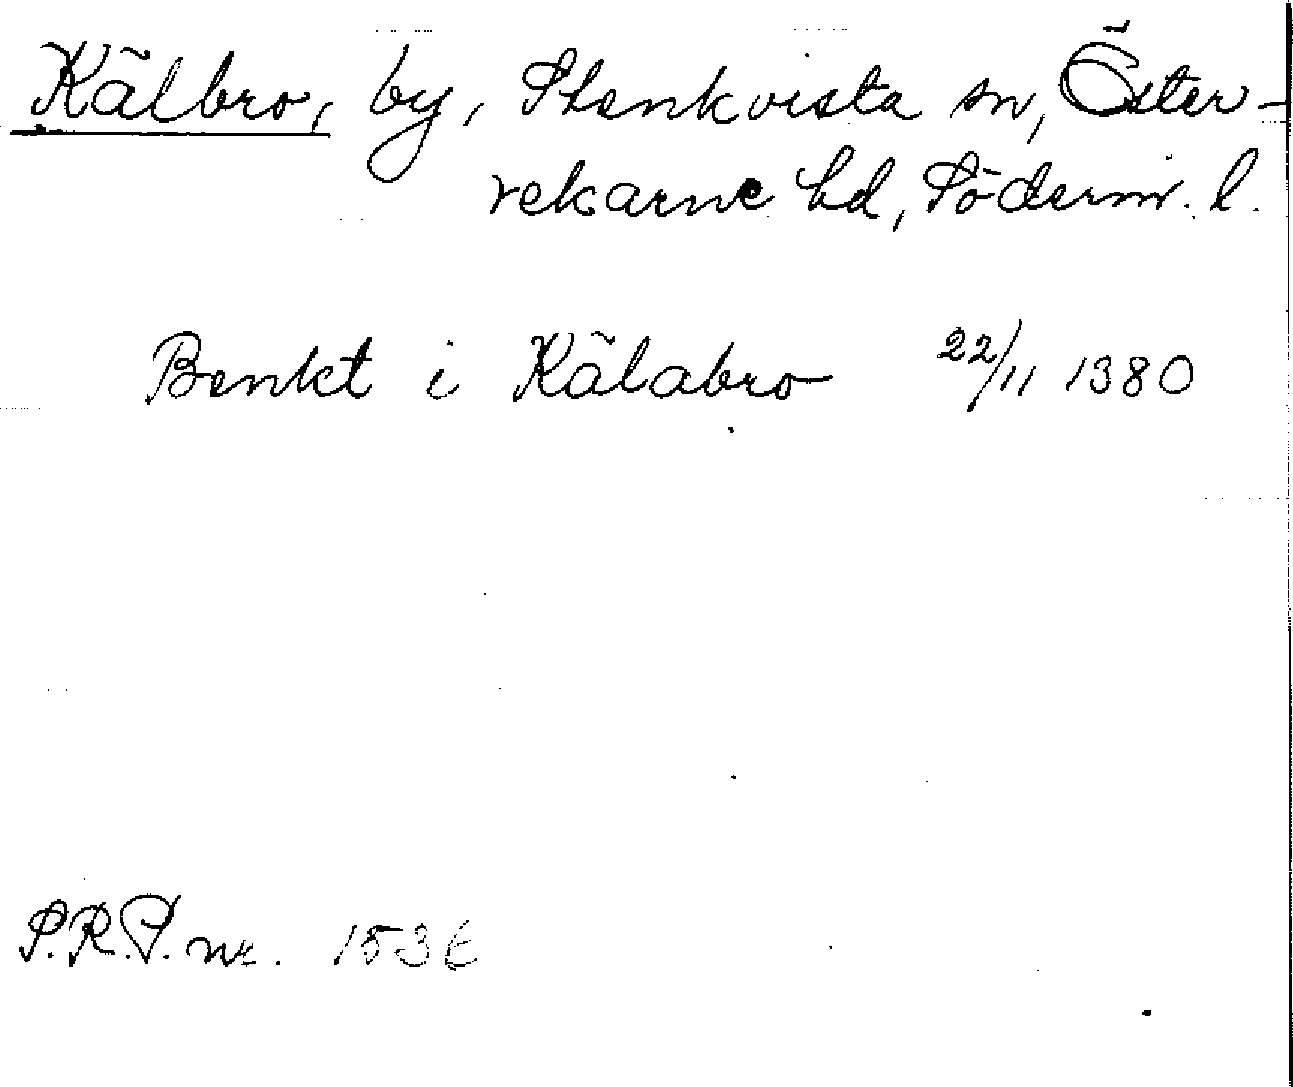 Kälbro, by, Stenkvista sn, Öster-
rekarne hd, Söderm. l.
Benkt i Kälabro 22/11 1380
S.R.P. nr. 1536